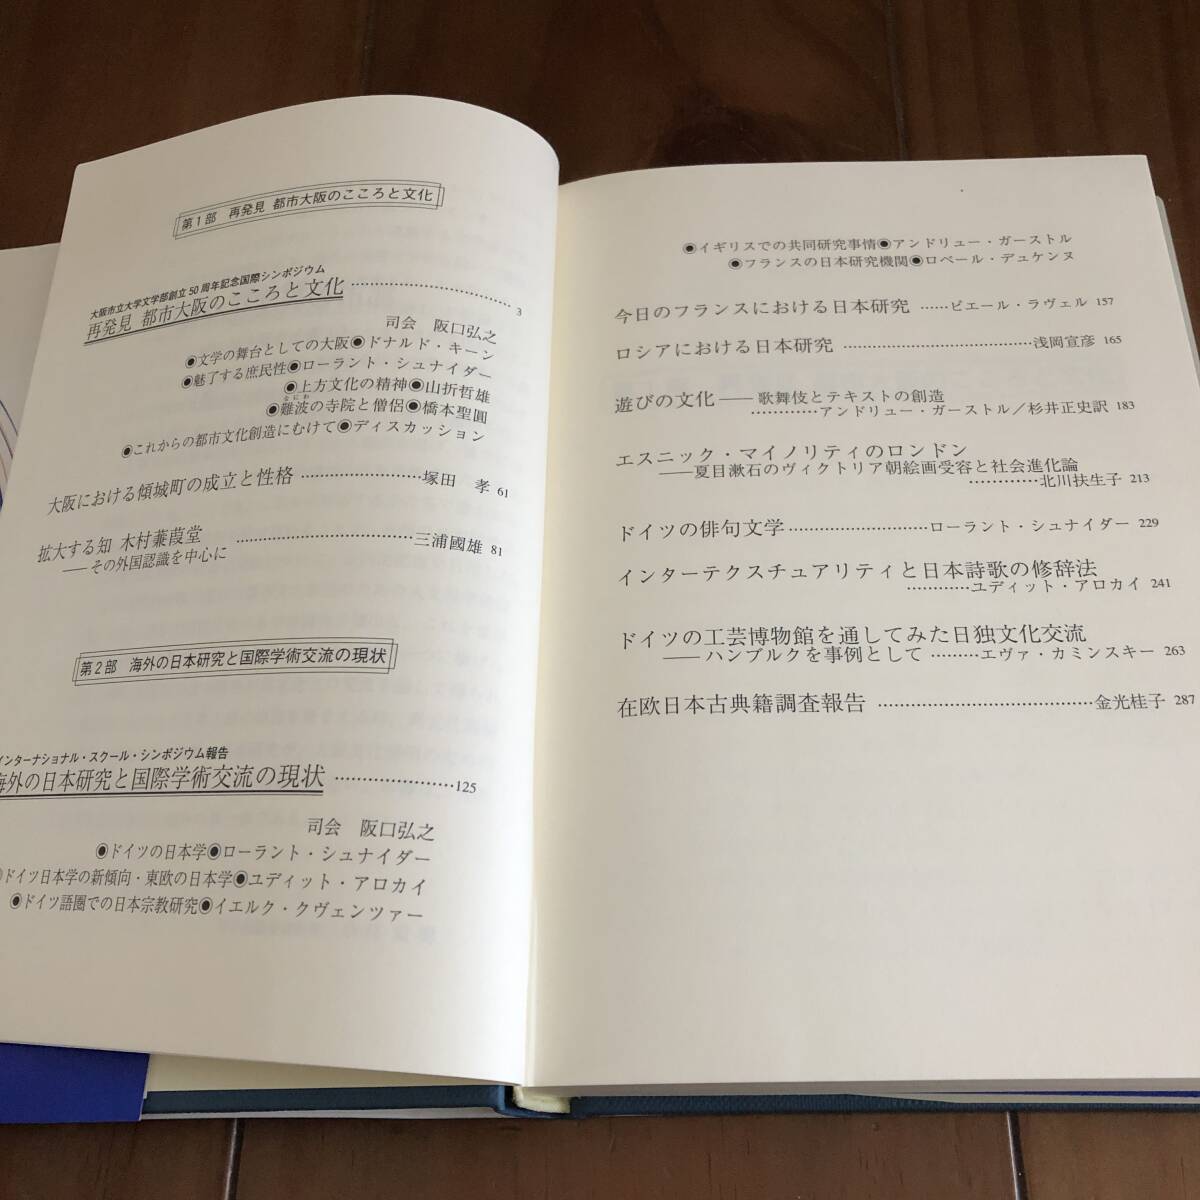 第1部 再発見 都市大阪のこころと文化
大阪市立大学文学部創立50周年記念国際シンポジウム
再発見 都市大阪のこころと文化 …………………………… 3
司会 阪口弘之
◉文学の舞台としての大阪◉ドナルド・キーン
◉魅了する庶民性◉ローラント・シュナイダー
◉上方文化の精神◉山折哲雄
なにわ
◉難波の寺院と僧侶◉橋本聖圓
◉これからの都市文化創造にむけて◉ディスカッション
大阪における傾城町の成立と性格 ……………………塚田 孝 61
拡大する知 木村蒹葭堂
――その外国認識を中心に ……………………………三浦國雄 81
第2部 海外の日本研究と国際学術交流の現状
インターナショナル・スクール・シンポジウム報告
海外の日本研究と国際学術交流の現状 ……………………125
司会 阪口弘之
◉ドイツの日本学◉ローラント・シュナイダー
◉ドイツ日本学の新傾向・東欧の日本学◉ユディット・アロカイ
◉ドイツ語圏での日本宗教研究◉イエルク・クヴェンツァー
◉イギリスでの共同研究事情◉アンドリュー・ガーストル
◉フランスの日本研究機関◉ロベール・デュケンヌ
今日のフランスにおける日本研究 ……ピエール・ラヴェル 157
ロシアにおける日本研究 ………………………………浅岡宣彦 165
遊びの文化――歌舞伎とテキストの創造
…………アンドリュー・ガーストル／杉井正史訳 183
エスニック・マイノリティのロンドン
――夏目漱石のヴィクトリア朝絵画受容と社会進化論
…………北川扶生子 213
ドイツの俳句文学 ………………………ローラント・シュナイダー 229
インターテクスチュアリティと日本詩歌の修辞法
…………ユディット・アロカイ 241
ドイツの工芸博物館を通してみた日独文化交流
――ハンブルクを事例として ………エヴァ・カミンスキー 263
在欧日本古典籍調査報告 …………………………………金光桂子 287